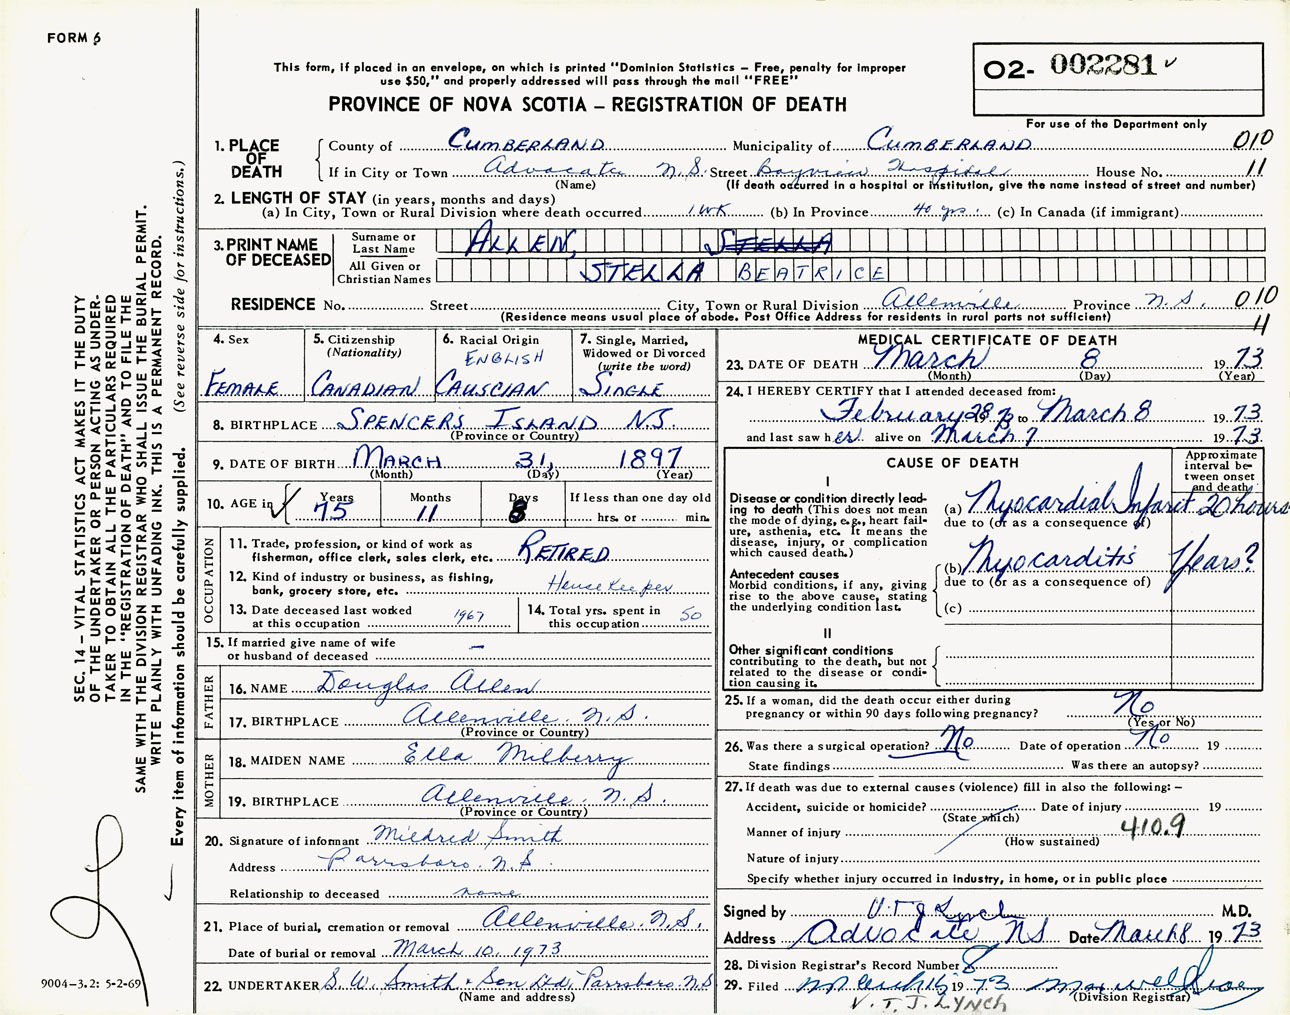 FORM 6
This form, if placed in an envelope, on which is printed "Dominion Statistics – Free, penalty for improper
use $50," and properly addressed will pass through the mail "FREE"
PROVINCE OF NOVA SCOTIA – REGISTRATION OF DEATH
02- 002281
For use of the Department only
1. PLACE OF DEATH
County of CUMBERLAND Municipality of CUMBERLAND 010
If in City or Town Advocate N.S. Street Bayview Hospital House No. 11
(Name) (If death occurred in a hospital or institution, give the name instead of street and number)
2. LENGTH OF STAY (in years, months and days)
(a) In City, Town or Rural Division where death occurred 1 WK (b) In Province 40 yrs. (c) In Canada (if immigrant)
3. PRINT NAME OF DECEASED
Surname or Last Name ALLEN, STELLA
All Given or Christian Names STELLA BEATRICE
RESIDENCE No. Street City, Town or Rural Division Allenville Province N.S. 010
(Residence means usual place of abode. Post Office Address for residents in rural parts not sufficient) 11
4. Sex
FEMALE
5. Citizenship (Nationality)
CANADIAN
6. Racial Origin
ENGLISH
CAUSCIAN
7. Single, Married, Widowed or Divorced (write the word)
SINGLE
8. BIRTHPLACE SPENCER'S ISLAND N.S.
(Province or Country)
9. DATE OF BIRTH MARCH 31, 1897
(Month) (Day) (Year)
10. AGE in Years Months Days If less than one day old
75 11 8 hrs. or min.
OCCUPATION
11. Trade, profession, or kind of work as
fisherman, office clerk, sales clerk, etc. RETIRED
12. Kind of industry or business, as fishing,
bank, grocery store, etc. House Keeper
13. Date deceased last worked
at this occupation 1967
14. Total yrs. spent in
this occupation 50
15. If married give name of wife
or husband of deceased –
FATHER
16. NAME Douglas Allen
17. BIRTHPLACE Allenville N.S.
(Province or Country)
MOTHER
18. MAIDEN NAME Ella Milberry
19. BIRTHPLACE Allenville N.S.
(Province or Country)
20. Signature of informant Mildred Smith
Address Parrsboro N.S.
Relationship to deceased none
21. Place of burial, cremation or removal Allenville N.S.
Date of burial or removal March 10, 1973
22. UNDERTAKER S. W. Smith & Son Ltd, Parrsboro N.S
(Name and address)
MEDICAL CERTIFICATE OF DEATH
23. DATE OF DEATH March 8 1973
(Month) (Day) (Year)
24. I HEREBY CERTIFY that I attended deceased from:
February 28 73 to March 8 1973
and last saw her alive on March 7 1973
CAUSE OF DEATH
Approximate interval between onset and death
I
Disease or condition directly lead-
ing to death (This does not mean
the mode of dying, e.g., heart fail-
ure, asthenia, etc. It means the
disease, injury, or complication
which caused death.)
(a) Myocardial Infarct 20 hours
due to (or as a consequence of)
Antecedent causes
Morbid conditions, if any, giving
rise to the above cause, stating
the underlying condition last.
(b) Myocarditis Years?
due to (or as a consequence of)
(c)
II
Other significant conditions
contributing to the death, but not
related to the disease or condi-
tion causing it.
25. If a woman, did the death occur either during
pregnancy or within 90 days following pregnancy? No
(Yes or No)
26. Was there a surgical operation? No Date of operation No 19
State findings Was there an autopsy?
27. If death was due to external causes (violence) fill in also the following: –
Accident, suicide or homicide? Date of injury 19
(State which)
Manner of injury 410.9
(How sustained)
Nature of injury
Specify whether injury occurred in industry, in home, or in public place
Signed by V T J Lynch M.D.
Address Advocate NS Date March 8 1973
28. Division Registrar's Record Number 8
29. Filed March 15 1973
(Division Registrar)
V. T. J. LYNCH
SEC. 14 – VITAL STATISTICS ACT MAKES IT THE DUTY
OF THE UNDERTAKER OR PERSON ACTING AS UNDER-
TAKER TO OBTAIN ALL THE PARTICULARS REQUIRED
IN THE "REGISTRATION OF DEATH" AND TO FILE THE
SAME WITH THE DIVISION REGISTRAR WHO SHALL ISSUE THE BURIAL PERMIT.
WRITE PLAINLY WITH UNFADING INK. THIS IS A PERMANENT RECORD.
Every item of information should be carefully supplied. (See reverse side for instructions.)
9004-3.2: 5-2-69